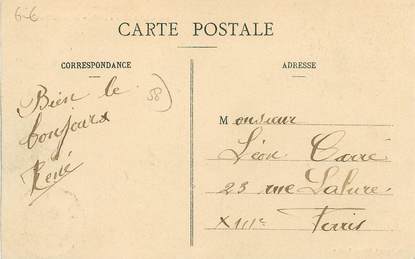 6-6
CARTE POSTALE
CORRESPONDANCE
ADRESSE
Bien le
bonjour
René
58
Monsieur
Léon Carré
23 rue